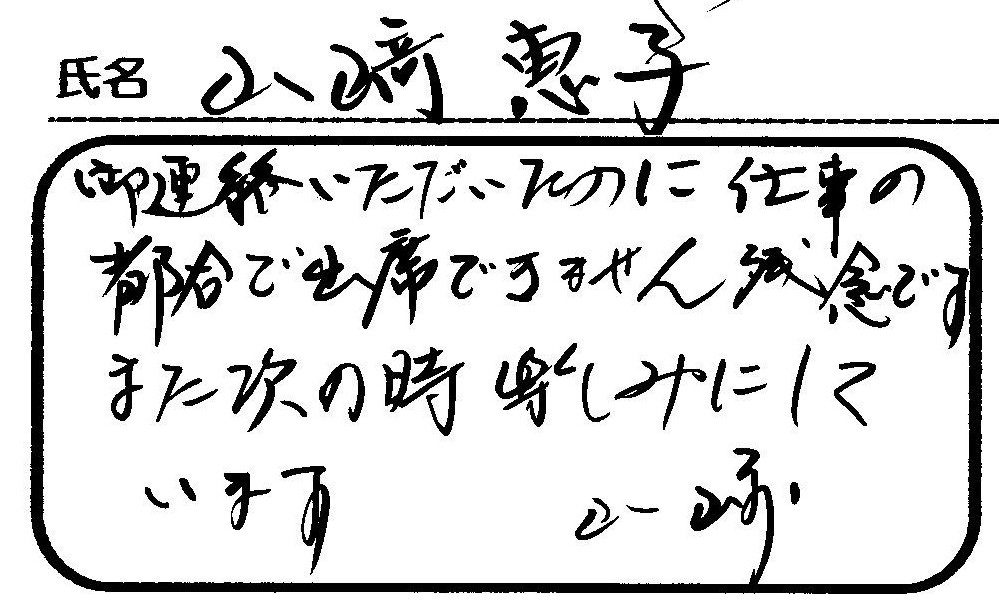 氏名 山﨑 恵子
御連絡いただいたのに 仕事の
都合で出席できません 残念です
また次の時 楽しみにして
います 山﨑